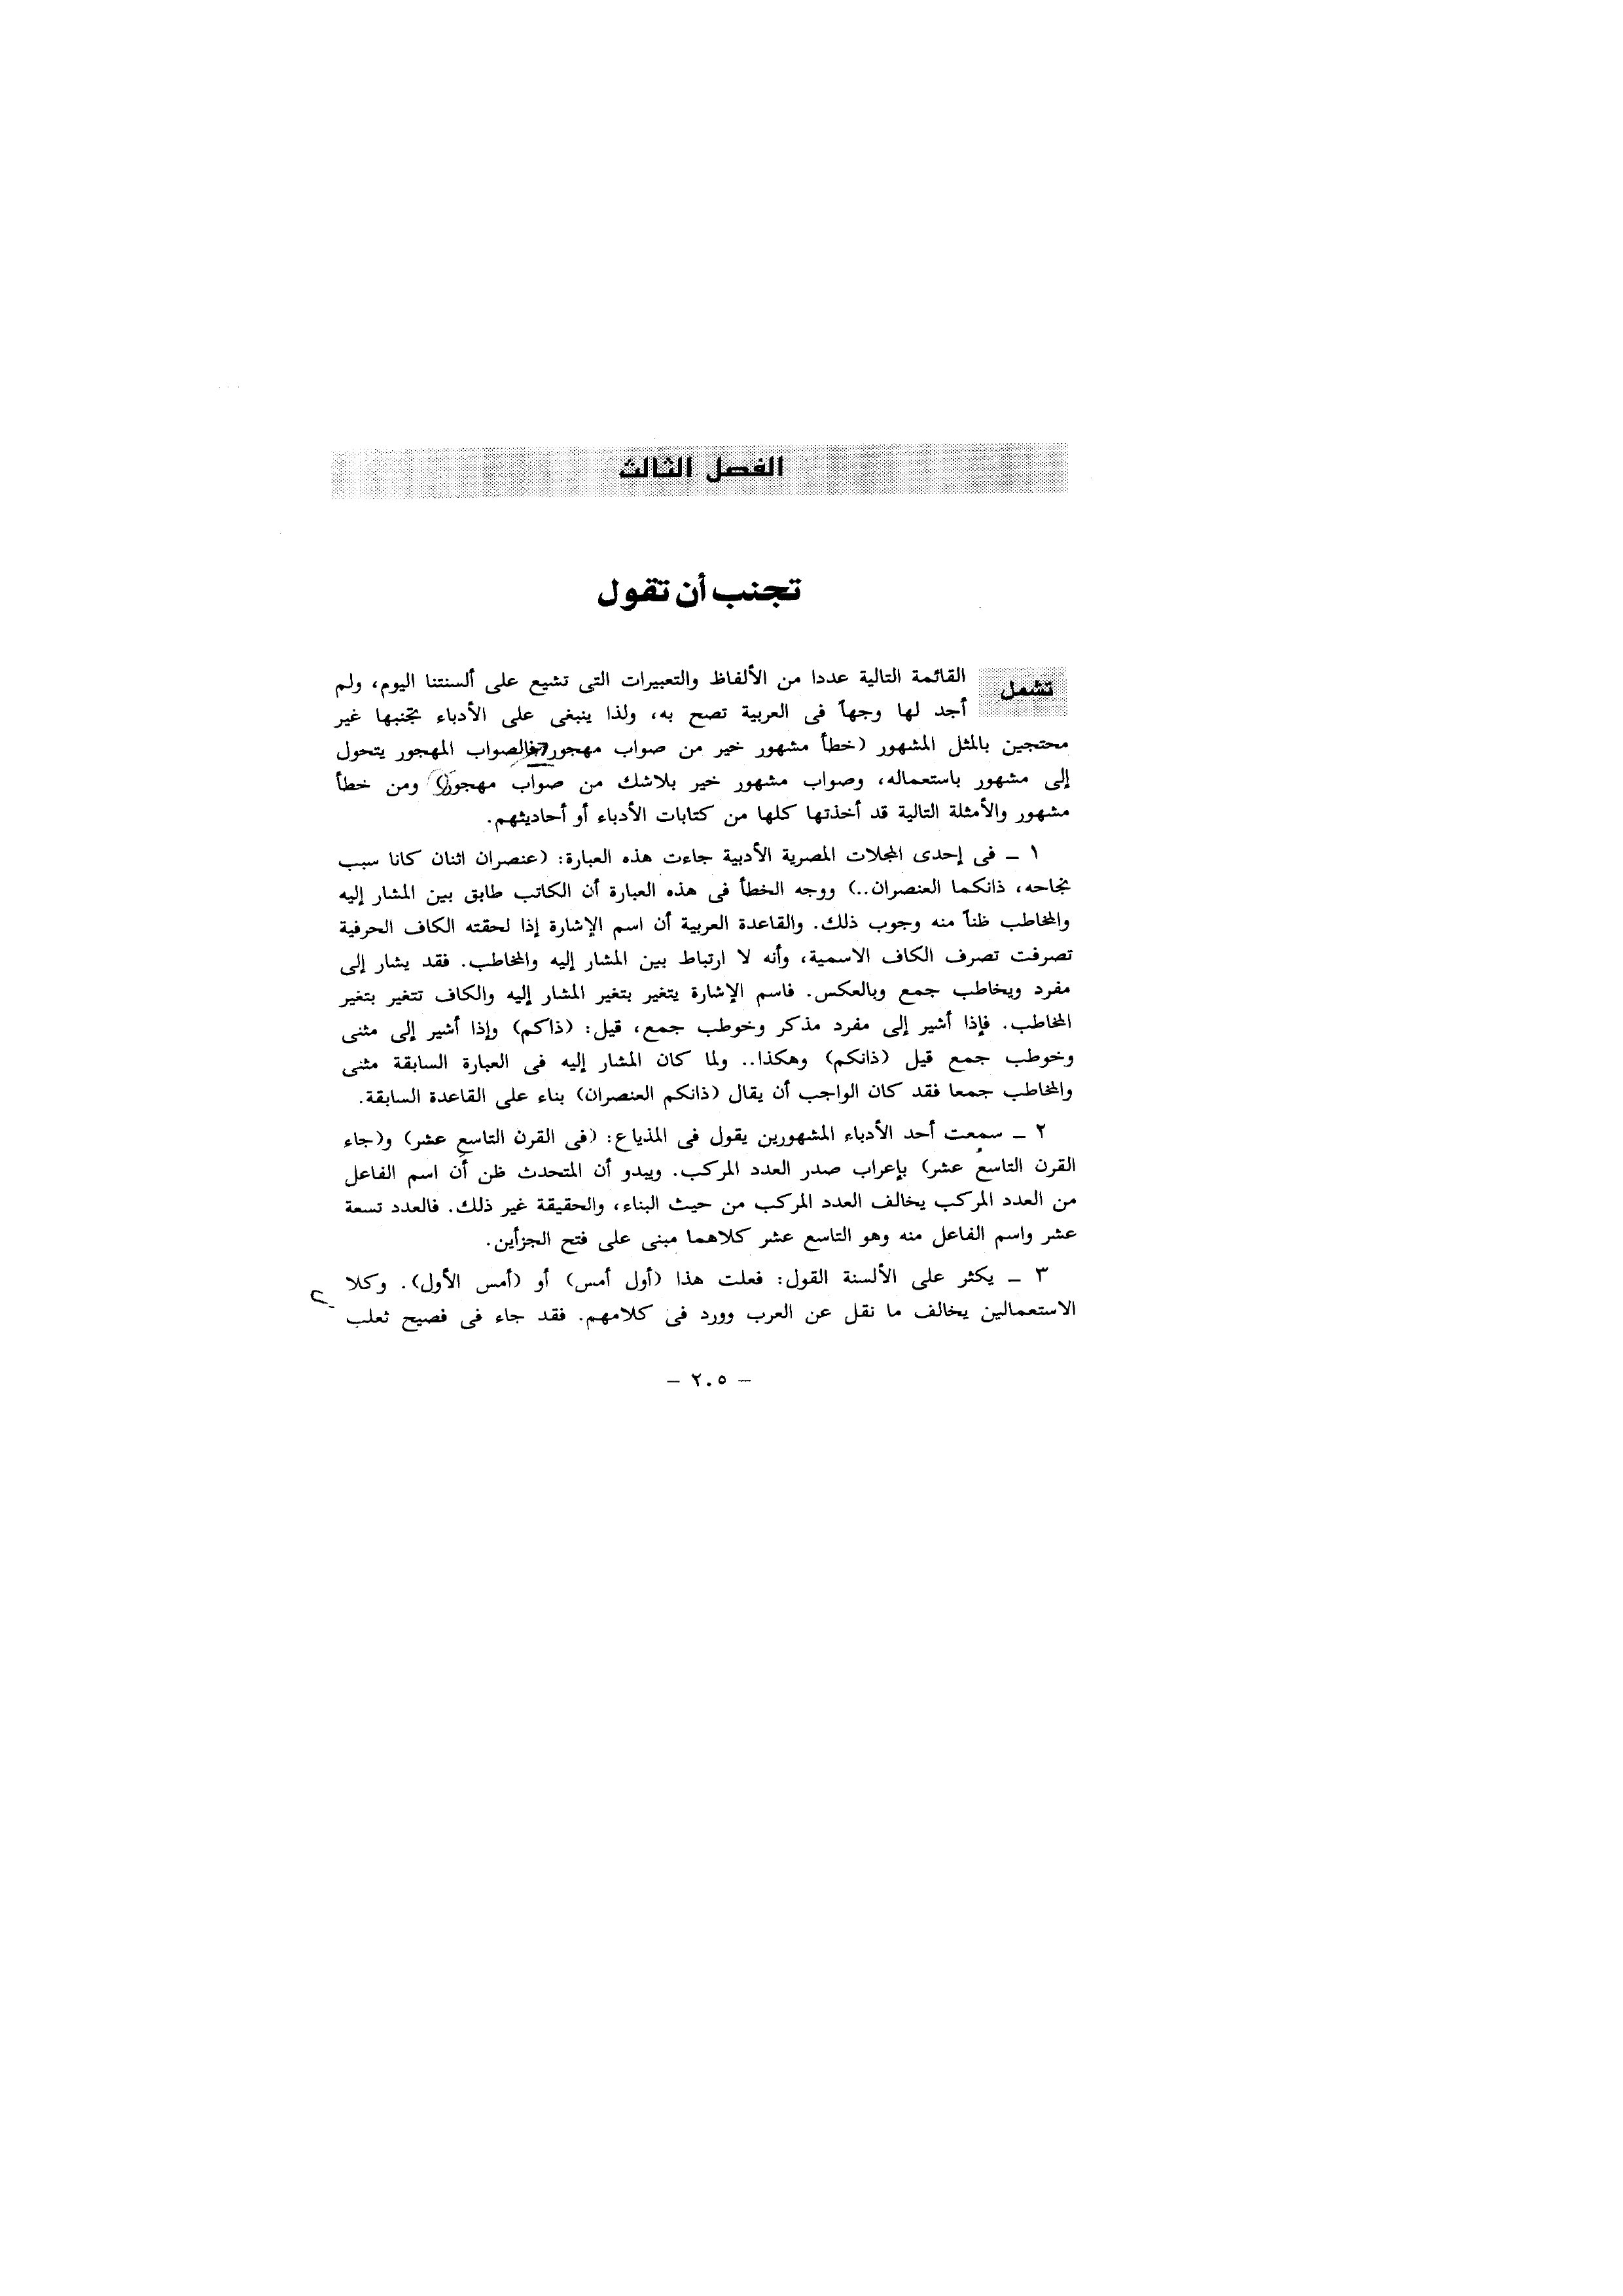 الفصل الثالث
تجنب أن تقول
تشمل القائمة التالية عددا من الألفاظ والتعبيرات التى تشيع على ألسنتنا اليوم، ولم
أجد لها وجهاً فى العربية تصح به، ولذا ينبغى على الأدباء تجنبها غير
محتجين بالمثل المشهور (خطأ مشهور خير من صواب مهجور) فالصواب المهجور يتحول
إلى مشهور باستعماله، وصواب مشهور خير بلاشك من صواب مهجور) ومن خطأ
مشهور والأمثلة التالية قد أخذتها كلها من كتابات الأدباء أو أحاديثهم.
١ ـ فى إحدى المجلات المصرية الأدبية جاءت هذه العبارة: (عنصران اثنان كانا سبب
نجاحه، ذانكما العنصران..) ووجه الخطأ فى هذه العبارة أن الكاتب طابق بين المشار إليه
والمخاطب ظناً منه وجوب ذلك. والقاعدة العربية أن اسم الإشارة إذا لحقته الكاف الحرفية
تصرفت تصرف الكاف الاسمية، وأنه لا ارتباط بين المشار إليه والمخاطب. فقد يشار إلى
مفرد ويخاطب جمع وبالعكس. فاسم الإشارة يتغير بتغير المشار إليه والكاف تتغير بتغير
المخاطب. فإذا أشير إلى مفرد مذكر وخوطب جمع، قيل: (ذاكم) وإذا أشير إلى مثنى
وخوطب جمع قيل (ذانكم) وهكذا.. ولما كان المشار إليه فى العبارة السابقة مثنى
والمخاطب جمعا فقد كان الواجب أن يقال (ذانكم العنصران) بناء على القاعدة السابقة.
٢ ـ سمعت أحد الأدباء المشهورين يقول فى المذياع: (فى القرن التاسعِ عشر) و(جاء
القرن التاسعُ عشر) بإعراب صدر العدد المركب. ويبدو أن المتحدث ظن أن اسم الفاعل
من العدد المركب يخالف العدد المركب من حيث البناء، والحقيقة غير ذلك. فالعدد تسعة
عشر واسم الفاعل منه وهو التاسع عشر كلاهما مبنى على فتح الجزأين.
٣ ـ يكثر على الألسنة القول: فعلت هذا (أول أمس) أو (أمس الأول). وكلا
الاستعمالين يخالف ما نقل عن العرب وورد فى كلامهم. فقد جاء فى فصيح ثعلب
– ٢٠٥ –